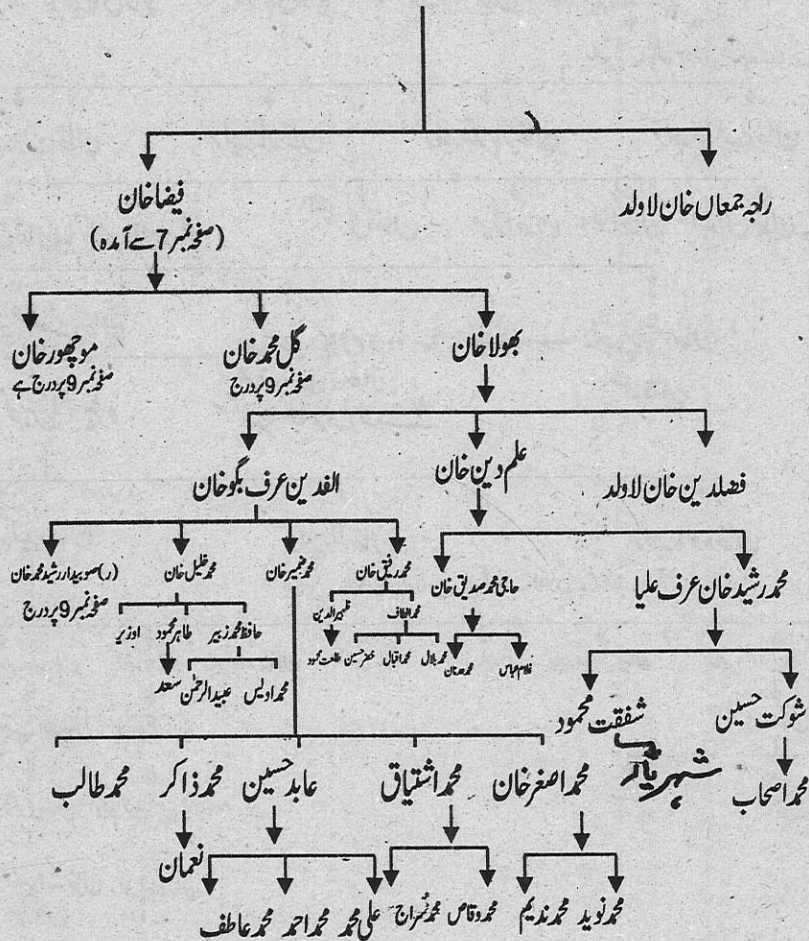 راجہ جمعاں خان لاولد
فیضا خان
(صفحہ نمبر 7 سے آمدہ)
بھولا خان
گل محمد خان
صفحہ نمبر 9 پر درج
موچھور خان
صفحہ نمبر 9 پر درج ہے
فضلدین خان لاولد
علم دین خان
الفدین عرف بگو خان
محمد رشید خان عرف علیا
حاجی محمد صدیق خان
محمد رفیق خان
محمد ضمیر خان
محمد خلیل خان
(ر) صوبیدار رشید محمد خان
صفحہ نمبر 9 پر درج
محمد الطاف
ظہیر الدین
حافظ محمد زبیر
طاہر محمود
اوزیر
غلام عباس
محمد عدنان
محمد بلال
محمد اقبال
خضر حسین
طلعت محمود
محمد اویس
عبید الرحمٰن
سعد
شوکت حسین
شفقت محمود
محمد اصحاب
شہریار
محمد اصغر خان
محمد اشتیاق
عابد حسین
محمد ذاکر
محمد طالب
نعمان
محمد نوید
محمد ندیم
محمد وقاص
محمد سراج
علی محمد
محمد احمد
محمد عاطف